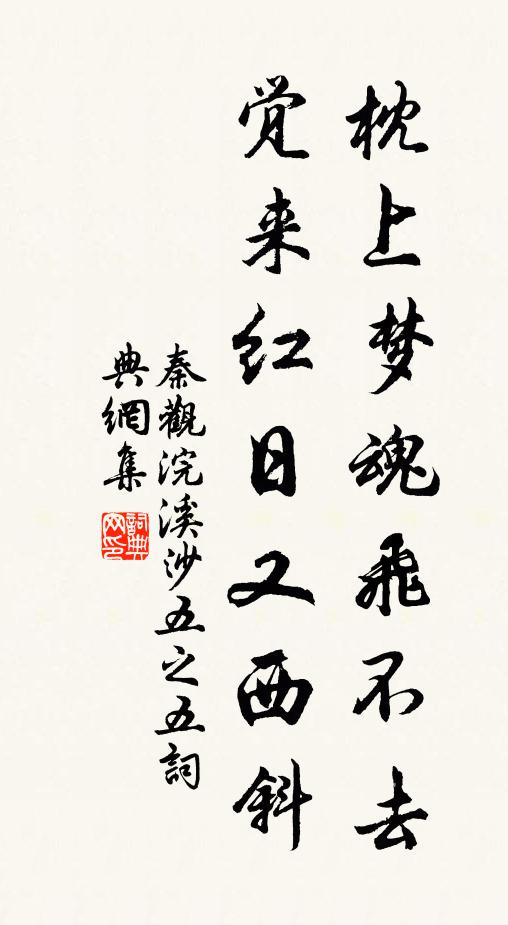 枕上梦魂飛不去
觉来红日又西斜
秦觀浣溪沙五之五詞
典網集
詞典网印